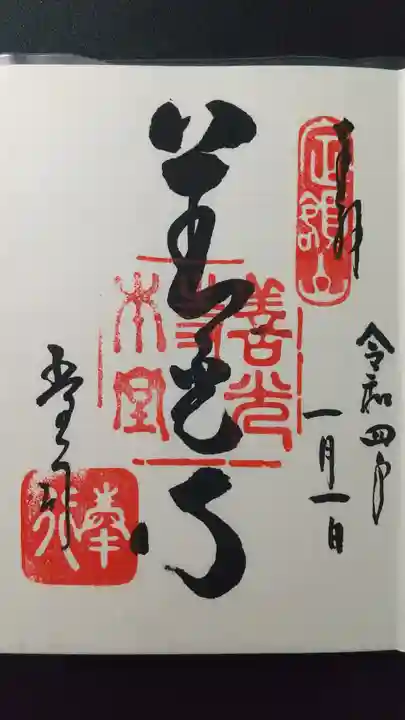 奉拝
定額山
令和四年
一月一日
善光寺
善光寺本堂
堂司